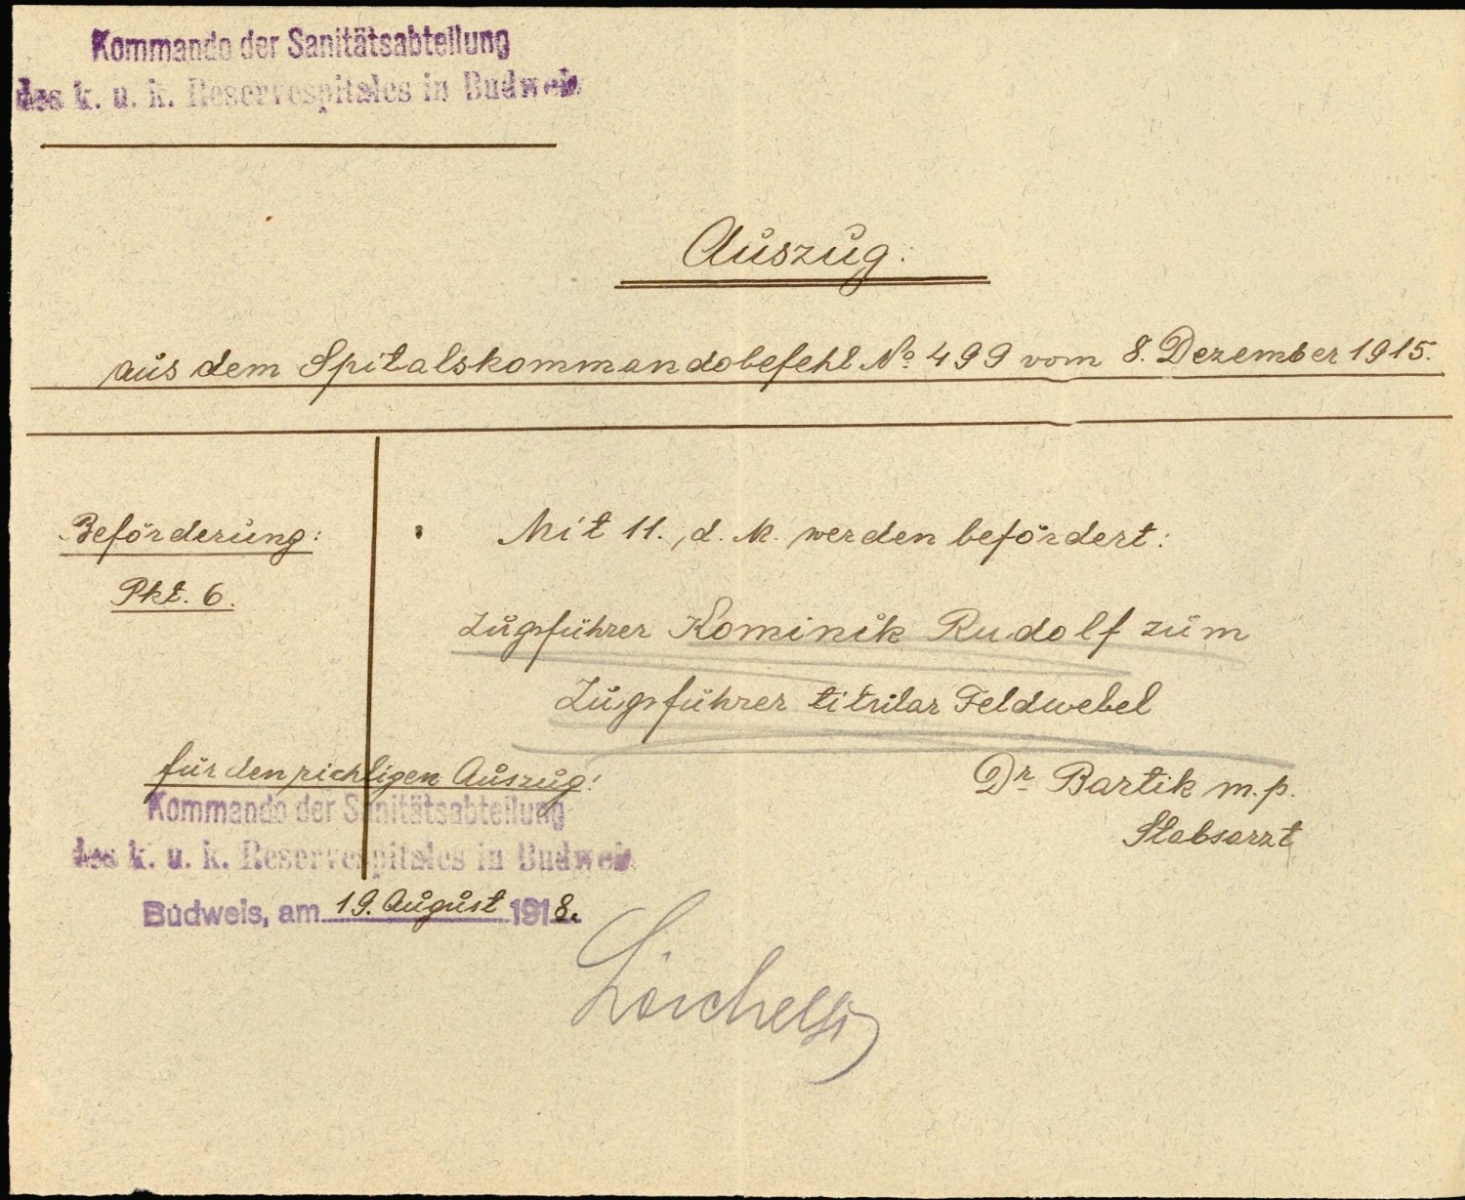 Kommando der Sanitätsabteilung
des k. u. k. Reservespitales in Budweis
Auszug:
aus dem Spitalskommandobefehl No 499 vom 8. Dezember 1915.
Beförderung:
Pkt. 6.
Mit 11. d. M. werden befördert:
Zugsführer Kominik Rudolf zum
Zugsführer titular Feldwebel
für den richtigen Auszug:
Dr Bartik m.p.
Stabsarzt
Kommando der Sanitätsabteilung
des k. u. k. Reservespitales in Budweis
Budweis, am 19. August 1918.